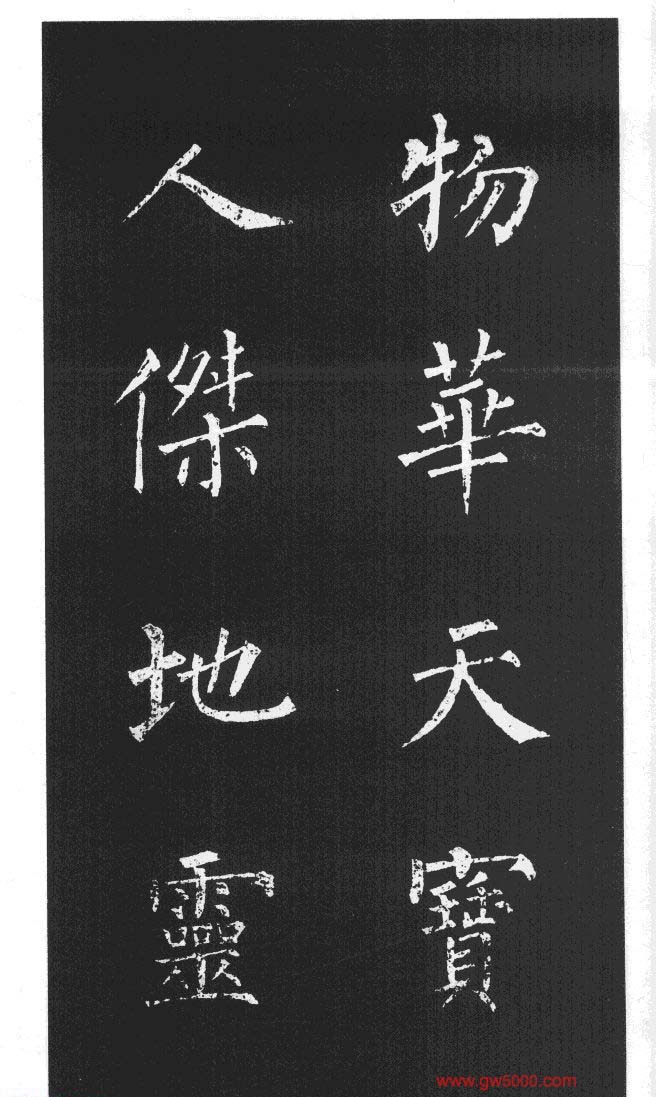 物華天寶
人傑地靈
www.gw5000.com